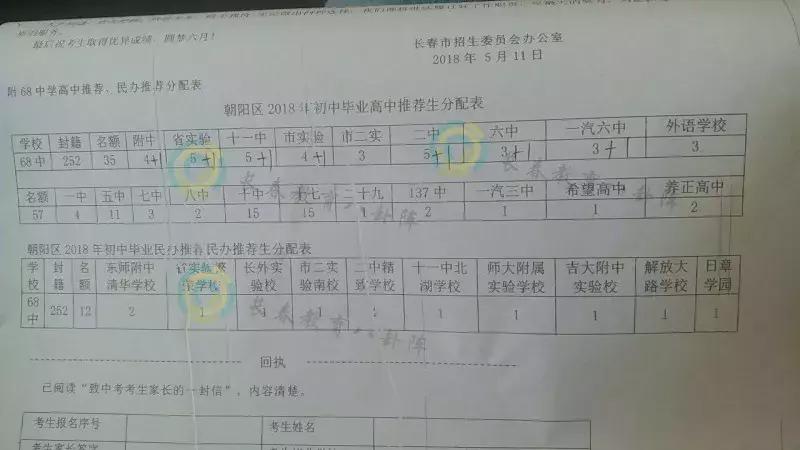 最后祝考生取得优异成绩，圆梦六月！
长春市招生委员会办公室
2018 年 5 月 11 日
附 68 中学高中推荐、民办推荐分配表
朝阳区 2018 年初中毕业高中推荐生分配表
学校 封籍 名额 附中 省实验 十一中 市实验 市二实 二中 六中 一汽六中 外语学校
68 中 252 35 4+1 5+1 5+1 4+1 3 5+1 3+1 3+1 3
名额 一中 五中 七中 八中 十中 养七 二十九 137 中 一汽三中 希望高中 养正高中
57 4 11 3 2 15 15 1 2 1 1 2
长春教育八卦阵
长春教育
朝阳区 2018 年初中毕业民办推荐民办推荐生分配表
学校 封籍 名额 东师附中清华学校 省实验繁荣学校 长外实验校 市二实验南校 二中精致学校 十一中北湖学校 师大附属实验学校 吉大附中实验校 解放大路学校 日章学园
68 中 252 12 2 1 1 1 1 1 1 1 1
长春教育八卦阵
回执
已阅读“致中考考生家长的一封信”，内容清楚。
考生报名序号 考生姓名
考生家长签字